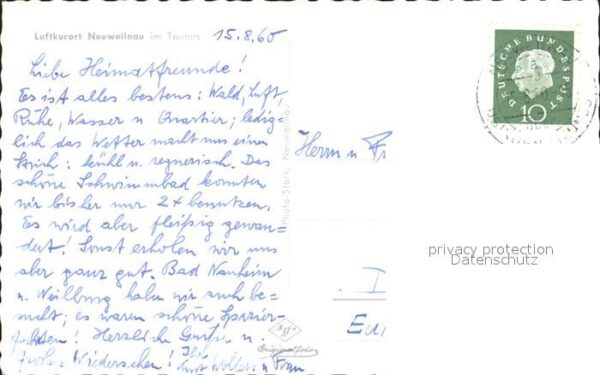 Luftkurort Neuweilnau im Taunus
15.8.60
Liebe Heimatfreunde!
Es ist alles bestens: Wald, Luft
Ruhe, Wasser u Quartier; ledig-
lich das Wetter macht uns einen
Strich: kühl u. regnerisch. Das
schöne Schwimmbad konnten
wir bisher nur 2x benutzen.
Es wird aber fleißig gewan-
dert! Sonst erholen wir uns
aber ganz gut. Bad Nauheim
u. Weilburg haben wir auch be-
sucht; es waren schöne Spazier-
fahrten! Herzliche Grüße u.
frohes Wiedersehen! Ihr
Kurt u Frau
Photo-Stark, Neuweilnau
DEUTSCHE BUNDESPOST
10
Herrn u Fr
privacy protection
Datenschutz